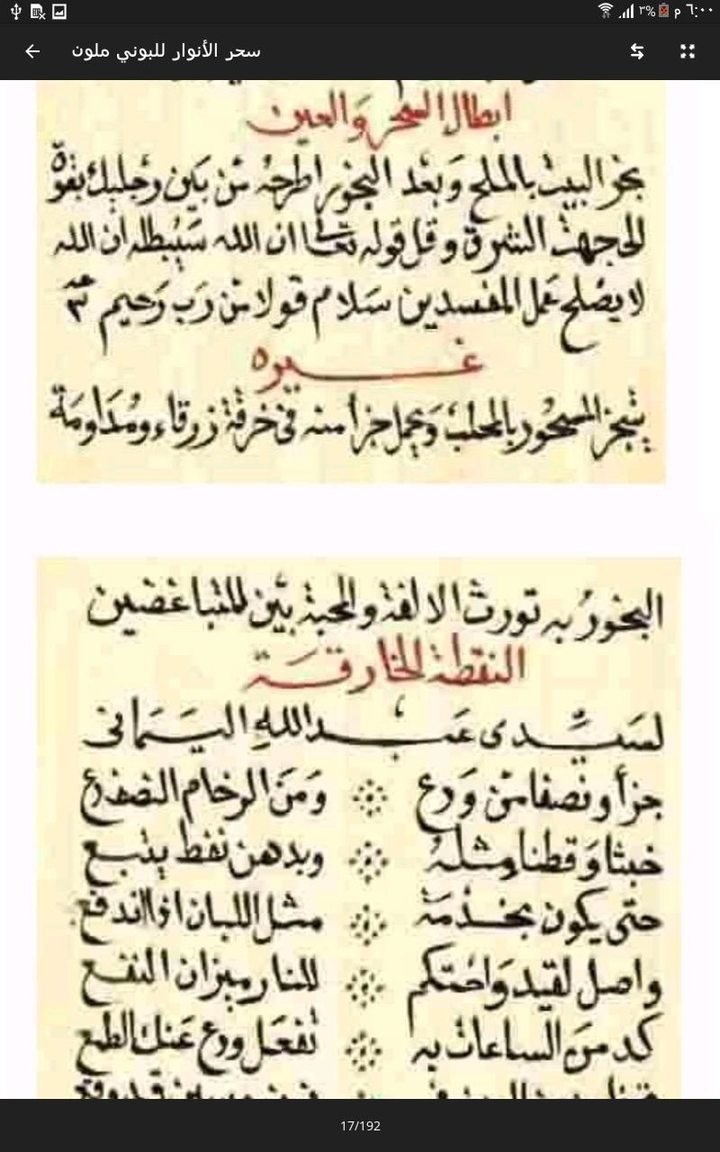 ٦:٠٠ م ٣%
سحر الأنوار للبوني ملون
ابطال السحر والعين
بخر البيت بالملح وبعد البخور اطرحه من بين رجليك بقوة
لجهة الشرق وقل قوله تعالى ان الله سيبطله ان الله
لا يصلح عمل المفسدين سلام قولا من رب رحيم
غيره
يتبخر المسحور بالمحلب ويحمل جزأ منه في خرقة زرقاء ومداومة
البخور به تورث الالفة والمحبة بين المتباغضين
النقطة الخارقة
لسيدى عبد الله اليمانى
جزأ ونصفا من ودع ومن الرخام الضفدع
خبثا وقطنا مثله وبدهن نفط يتبع
حتى يكون بخدمة مثل اللبان اذا اندفع
واصل لقيد واحتكم للنار ميزان النفع
كد من الساعات به تفعل ودع عنك الطمع
17/192